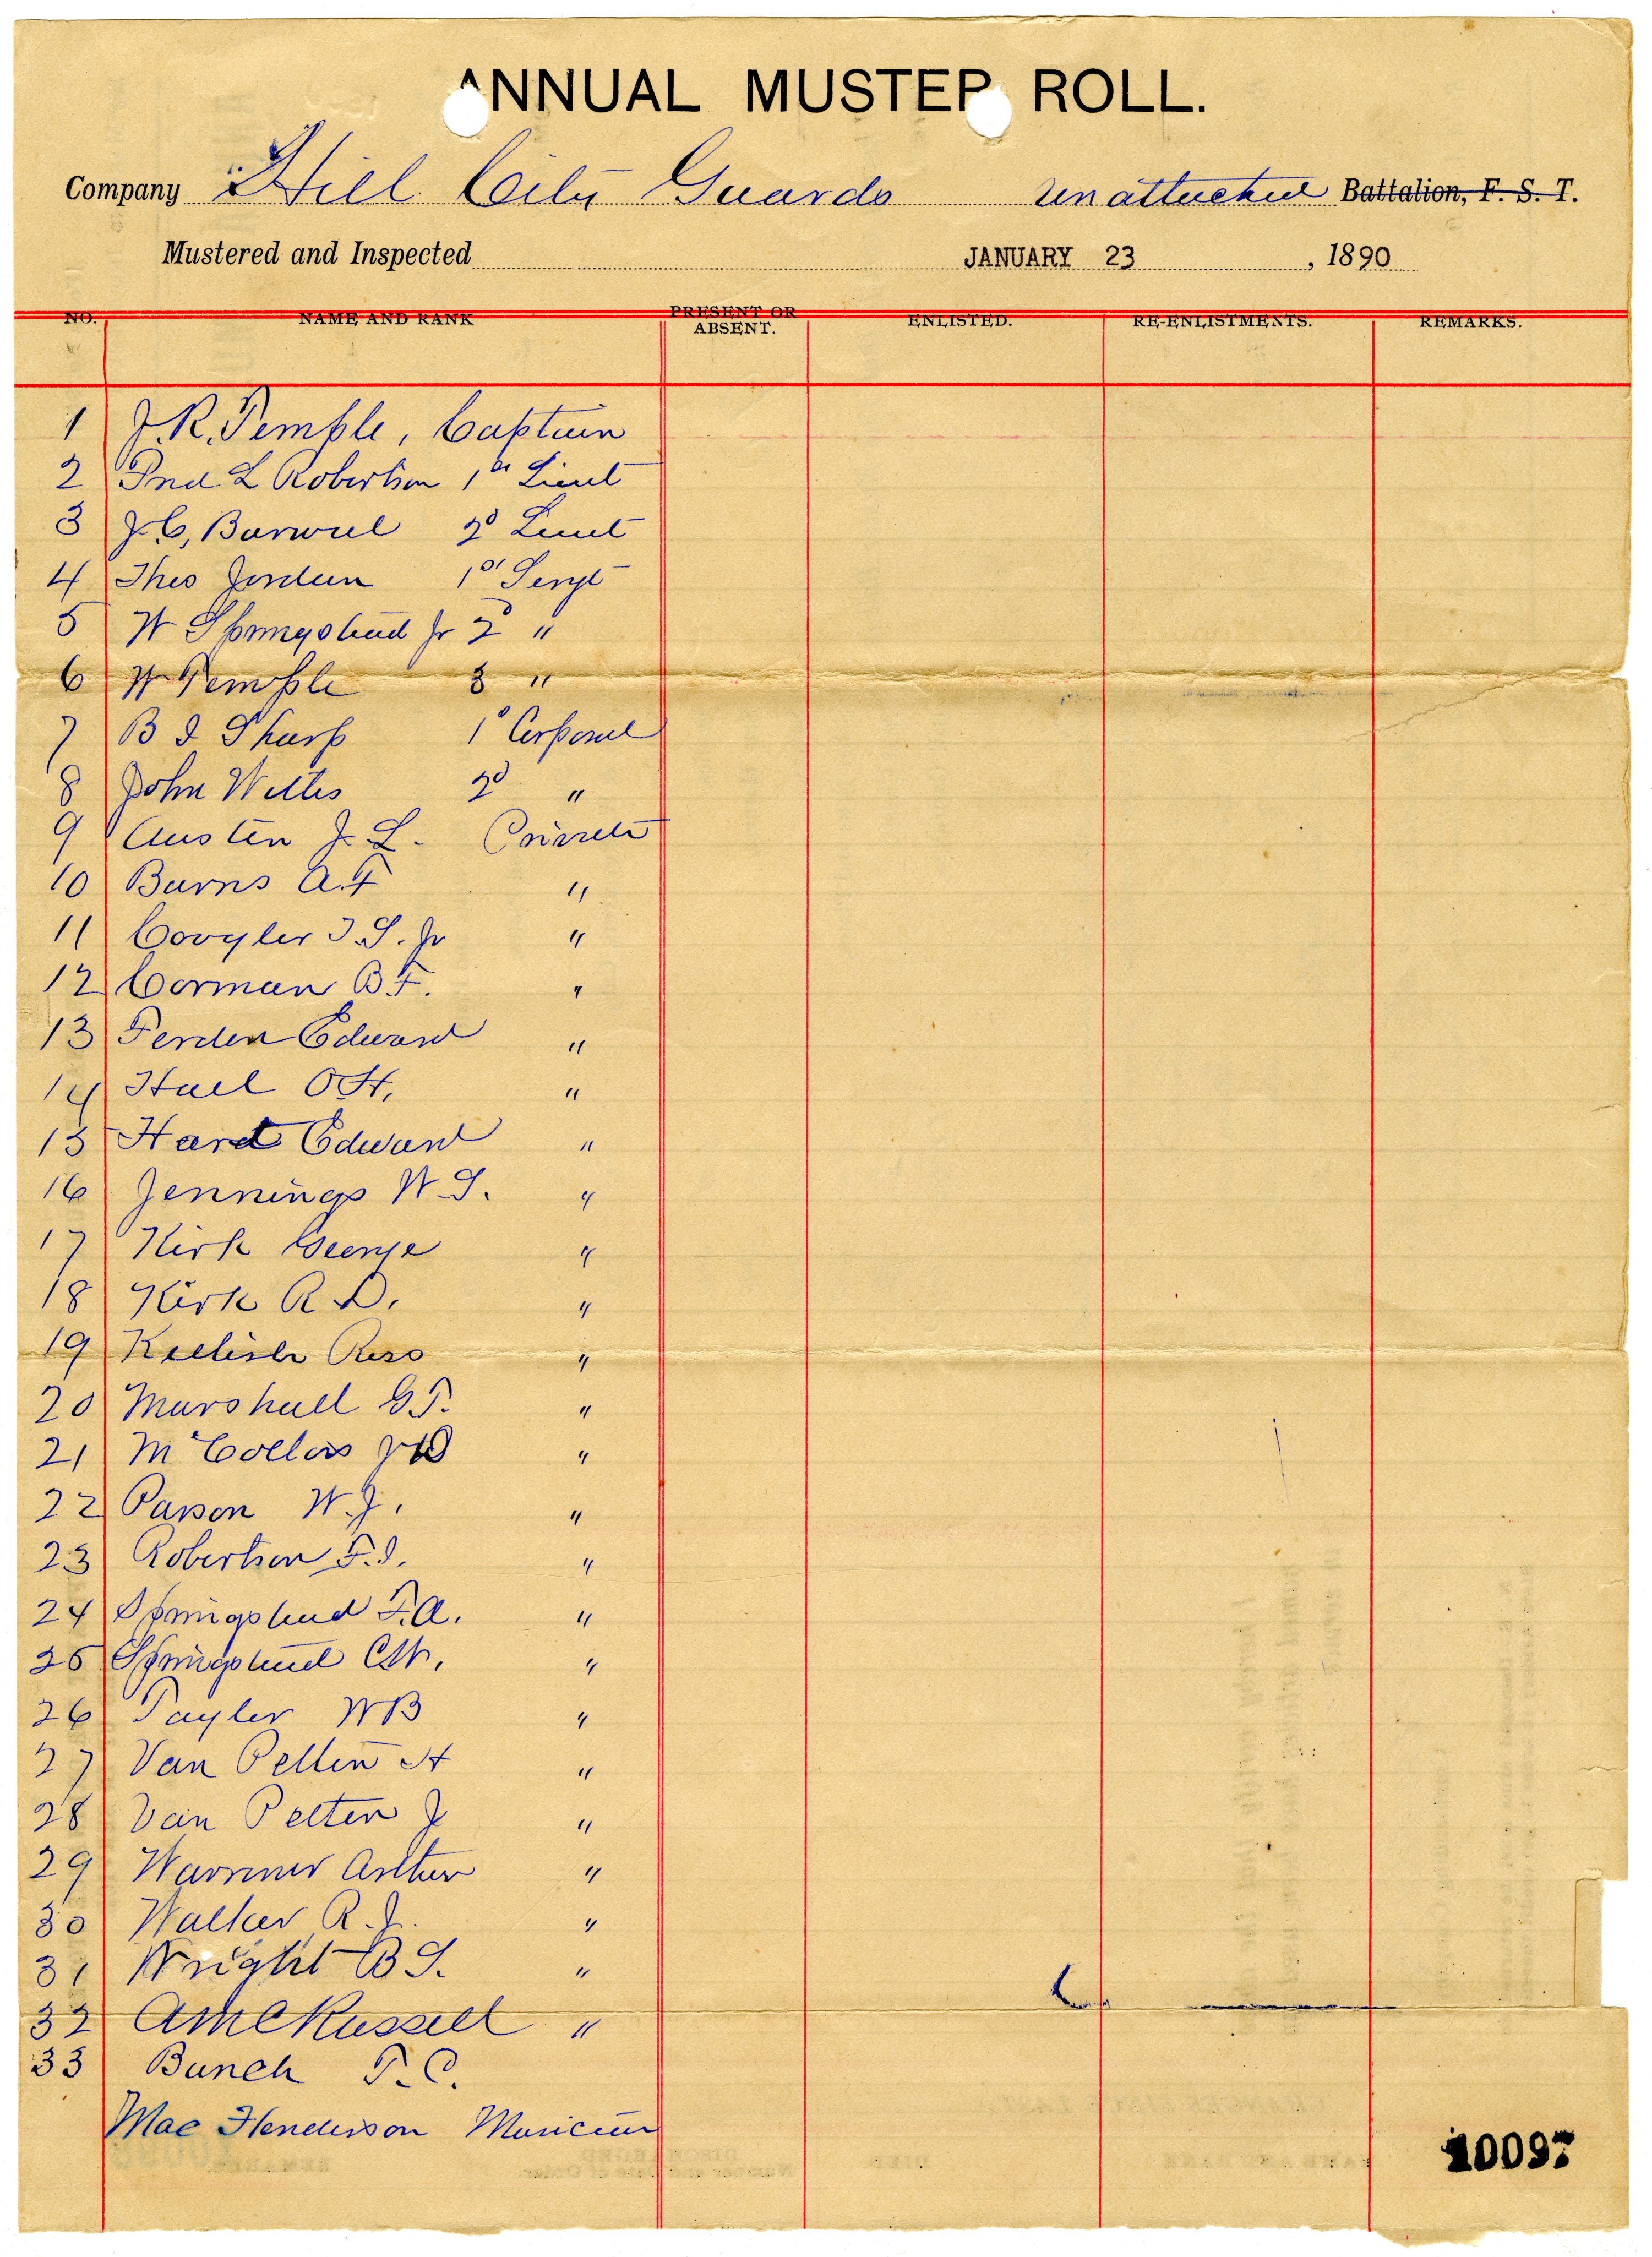 ANNUAL MUSTER ROLL.
Company Hill City Guards Unattached Battalion, F. S. T.
Mustered and Inspected JANUARY 23, 1890
NO. NAME AND RANK PRESENT OR ABSENT. ENLISTED. RE-ENLISTMENTS. REMARKS.
1 J.R. Temple, Captain
2 Jno L Robertson 1st Lieut
3 J.C. Barwick 2d Lieut
4 Theo Jordan 1st Sergt
5 W Springstead Jr 2 "
6 W Temple 3 "
7 B J Sharp 1st Corporal
8 John Willis 2d "
9 Austin J. L. Private
10 Burns A.F "
11 Coogler J.S. Jr "
12 Corman B.F. "
13 Edward "
14 Hall O.H. "
15 Hart Edward "
16 Jennings W.S. "
17 Kirk George "
18 Kirk R.D. "
19 Ross "
20 Marshall G.T. "
21 "
22 W.J. "
23 Robertson F.J. "
24 Springstead F.A. "
25 Springstead "
26 Tayler WB "
27 Van Pelten H "
28 Van Pelten J "
29 Arthur "
30 Walker R.J. "
31 Wright B S. "
32 "
33 Bunch T.C.
Mac Henderson Musician
10097